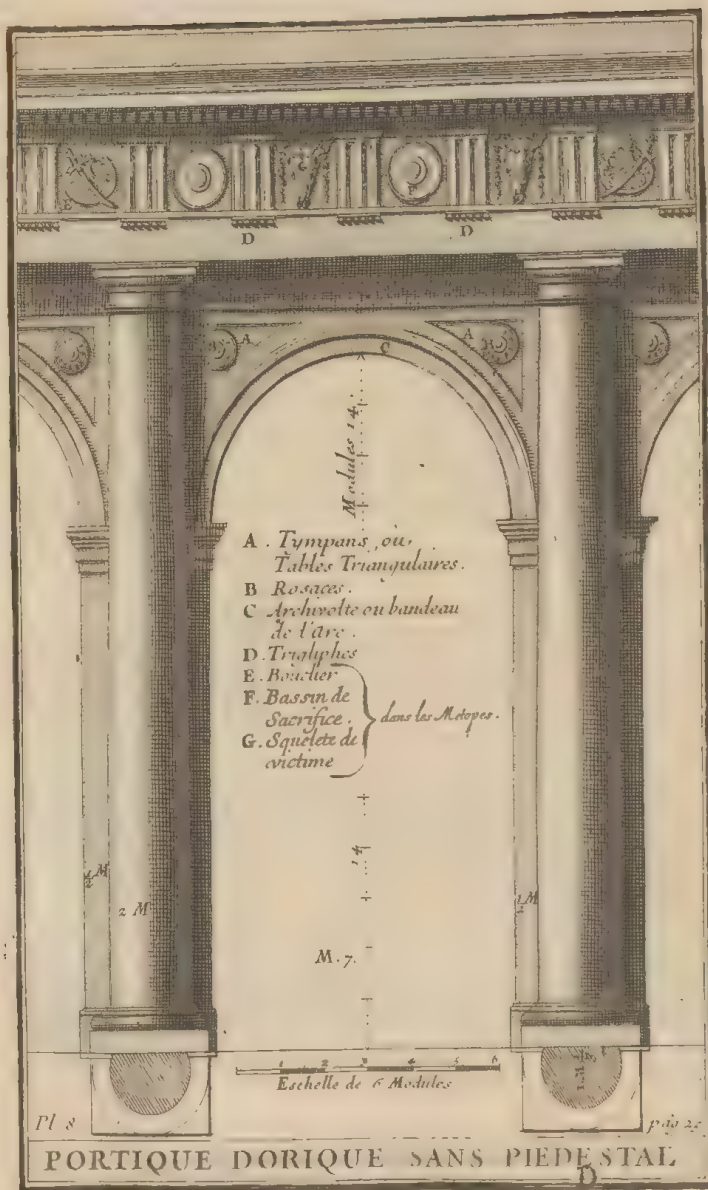 E
G
F
D
D
A
A
B
C
Modules 14.
A . Tympans , ou
Tables Triangulaires .
B Rosaces .
C Archivolte ou bandeau
de l'arc .
D . Trigliphes
E . Bouclier
F . Bassin de
Sacrifice .
dans les Metopes .
G . Squelete de
victime
½ M
2 M
½ M
14
M . 7 .
1 2 3 4 5 6
Eschelle de 6 Modules
Pl 8
pag 25
PORTIQUE DORIQUE SANS PIEDESTAL
D